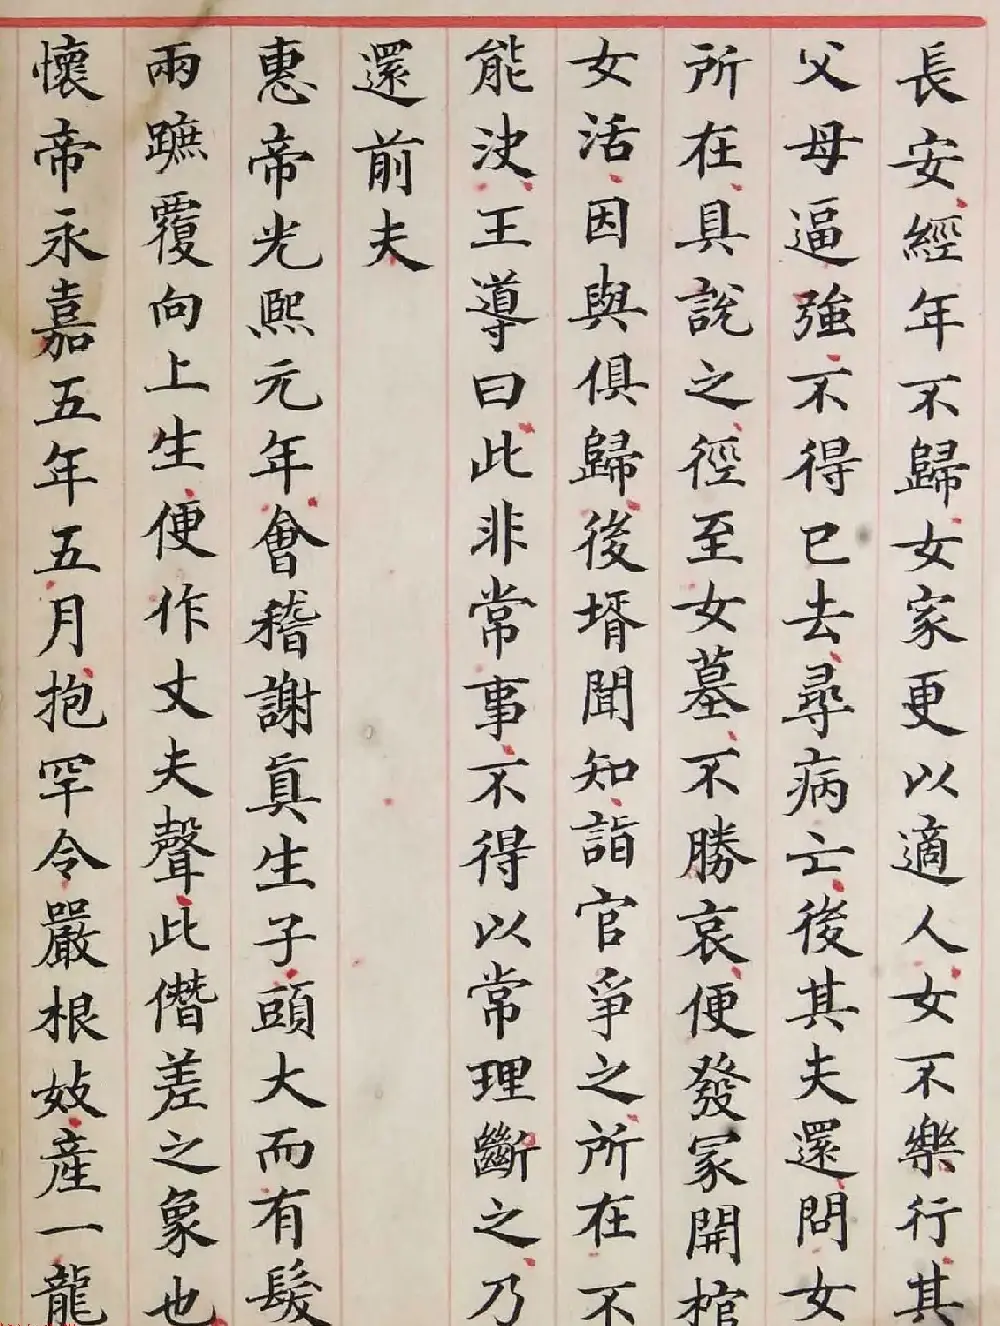 長安經年不歸女家更以適人女不樂行其
父母逼強不得已去尋病亡後其夫還問女
所在具說之徑至女墓不勝哀便發冢開棺
女活因與俱歸後壻聞知詣官爭之所在不
能決王導曰此非常事不得以常理斷之乃
還前夫
惠帝光熙元年會稽謝眞生子頭大而有髮
兩蹠覆向上生便作丈夫聲此僭差之象也
懷帝永嘉五年五月抱罕令嚴根妓產一龍